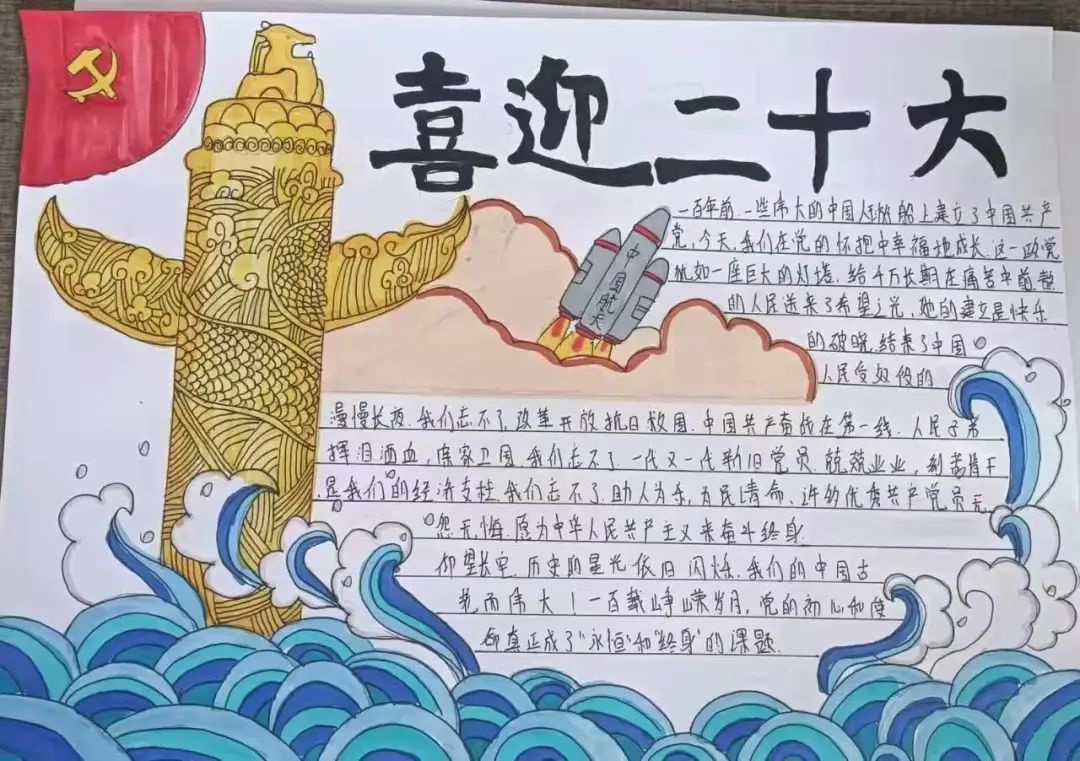 喜迎二十大
中国航天
一百年前,一些伟大的中国人在船上建立了中国共产
党,今天,我们在党的怀抱中幸福地成长.这一政党
犹如一座巨大的灯塔,给千万长期在痛苦中煎熬
的人民送来了希望之光,她的建立是快乐
的破晓,结束了中国
人民受奴役的
漫慢长夜.我们忘不了,改革开放抗日救国.中国共产奋战在第一线.人民子弟
挥泪洒血,保家卫国.我们忘不了.一代又一代新旧党员.兢兢业业,
是我们的经济支柱.我们忘不了.助人为乐,为民请命、许多优秀共产党员无
怨无悔,愿为中华人民共产主义来奋斗终身.
仰望长空,历史的星光依旧闪烁.我们的中国古
老而伟大!一百载峥嵘岁月,党的初心和使
命真正成了"永恒"和"终身"的课题.